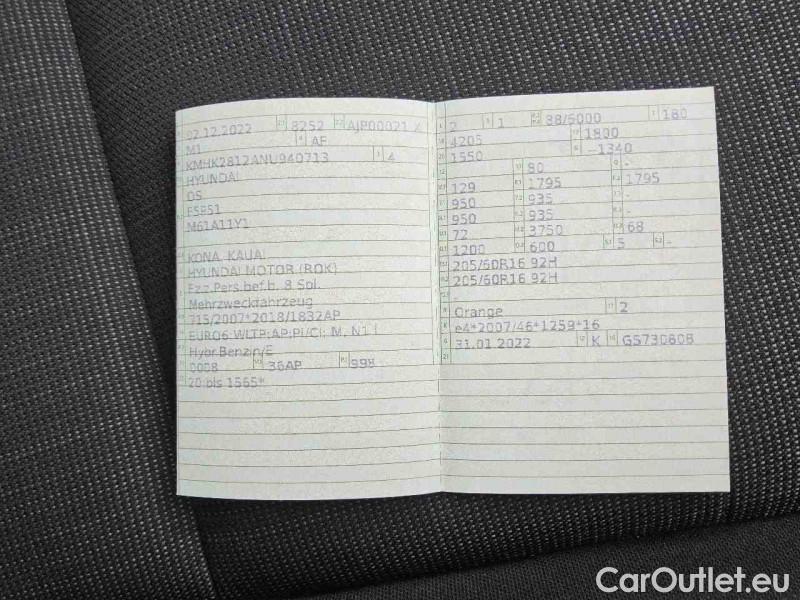 02.12.2022 8252 AJP00021
M1 AF
KMHK2812ANU940713 4
HYUNDAI
OS
F5P51
M61A11Y1
KONA, KAUAI
HYUNDAI MOTOR (ROK)
Fz.z.Pers.bef.b. 8 Spl.
Mehrzweckfahrzeug
715/2007*2018/1832AP
EURO6 WLTP;AP;PI/CI; M, N1 I
Hybr.Benzin/E
0008 36AP 998
20 bis 1565*
2 1 88/6000 180
4205 1800
1550 -1340
80 -
129 1795 1795
950 935 -
950 935 -
72 3750 68
1200 600 5 -
205/60R16 92H
205/60R16 92H
-
Orange 2
e4*2007/46*1259*16
31.01.2022 K GS730808
CarOutlet.eu